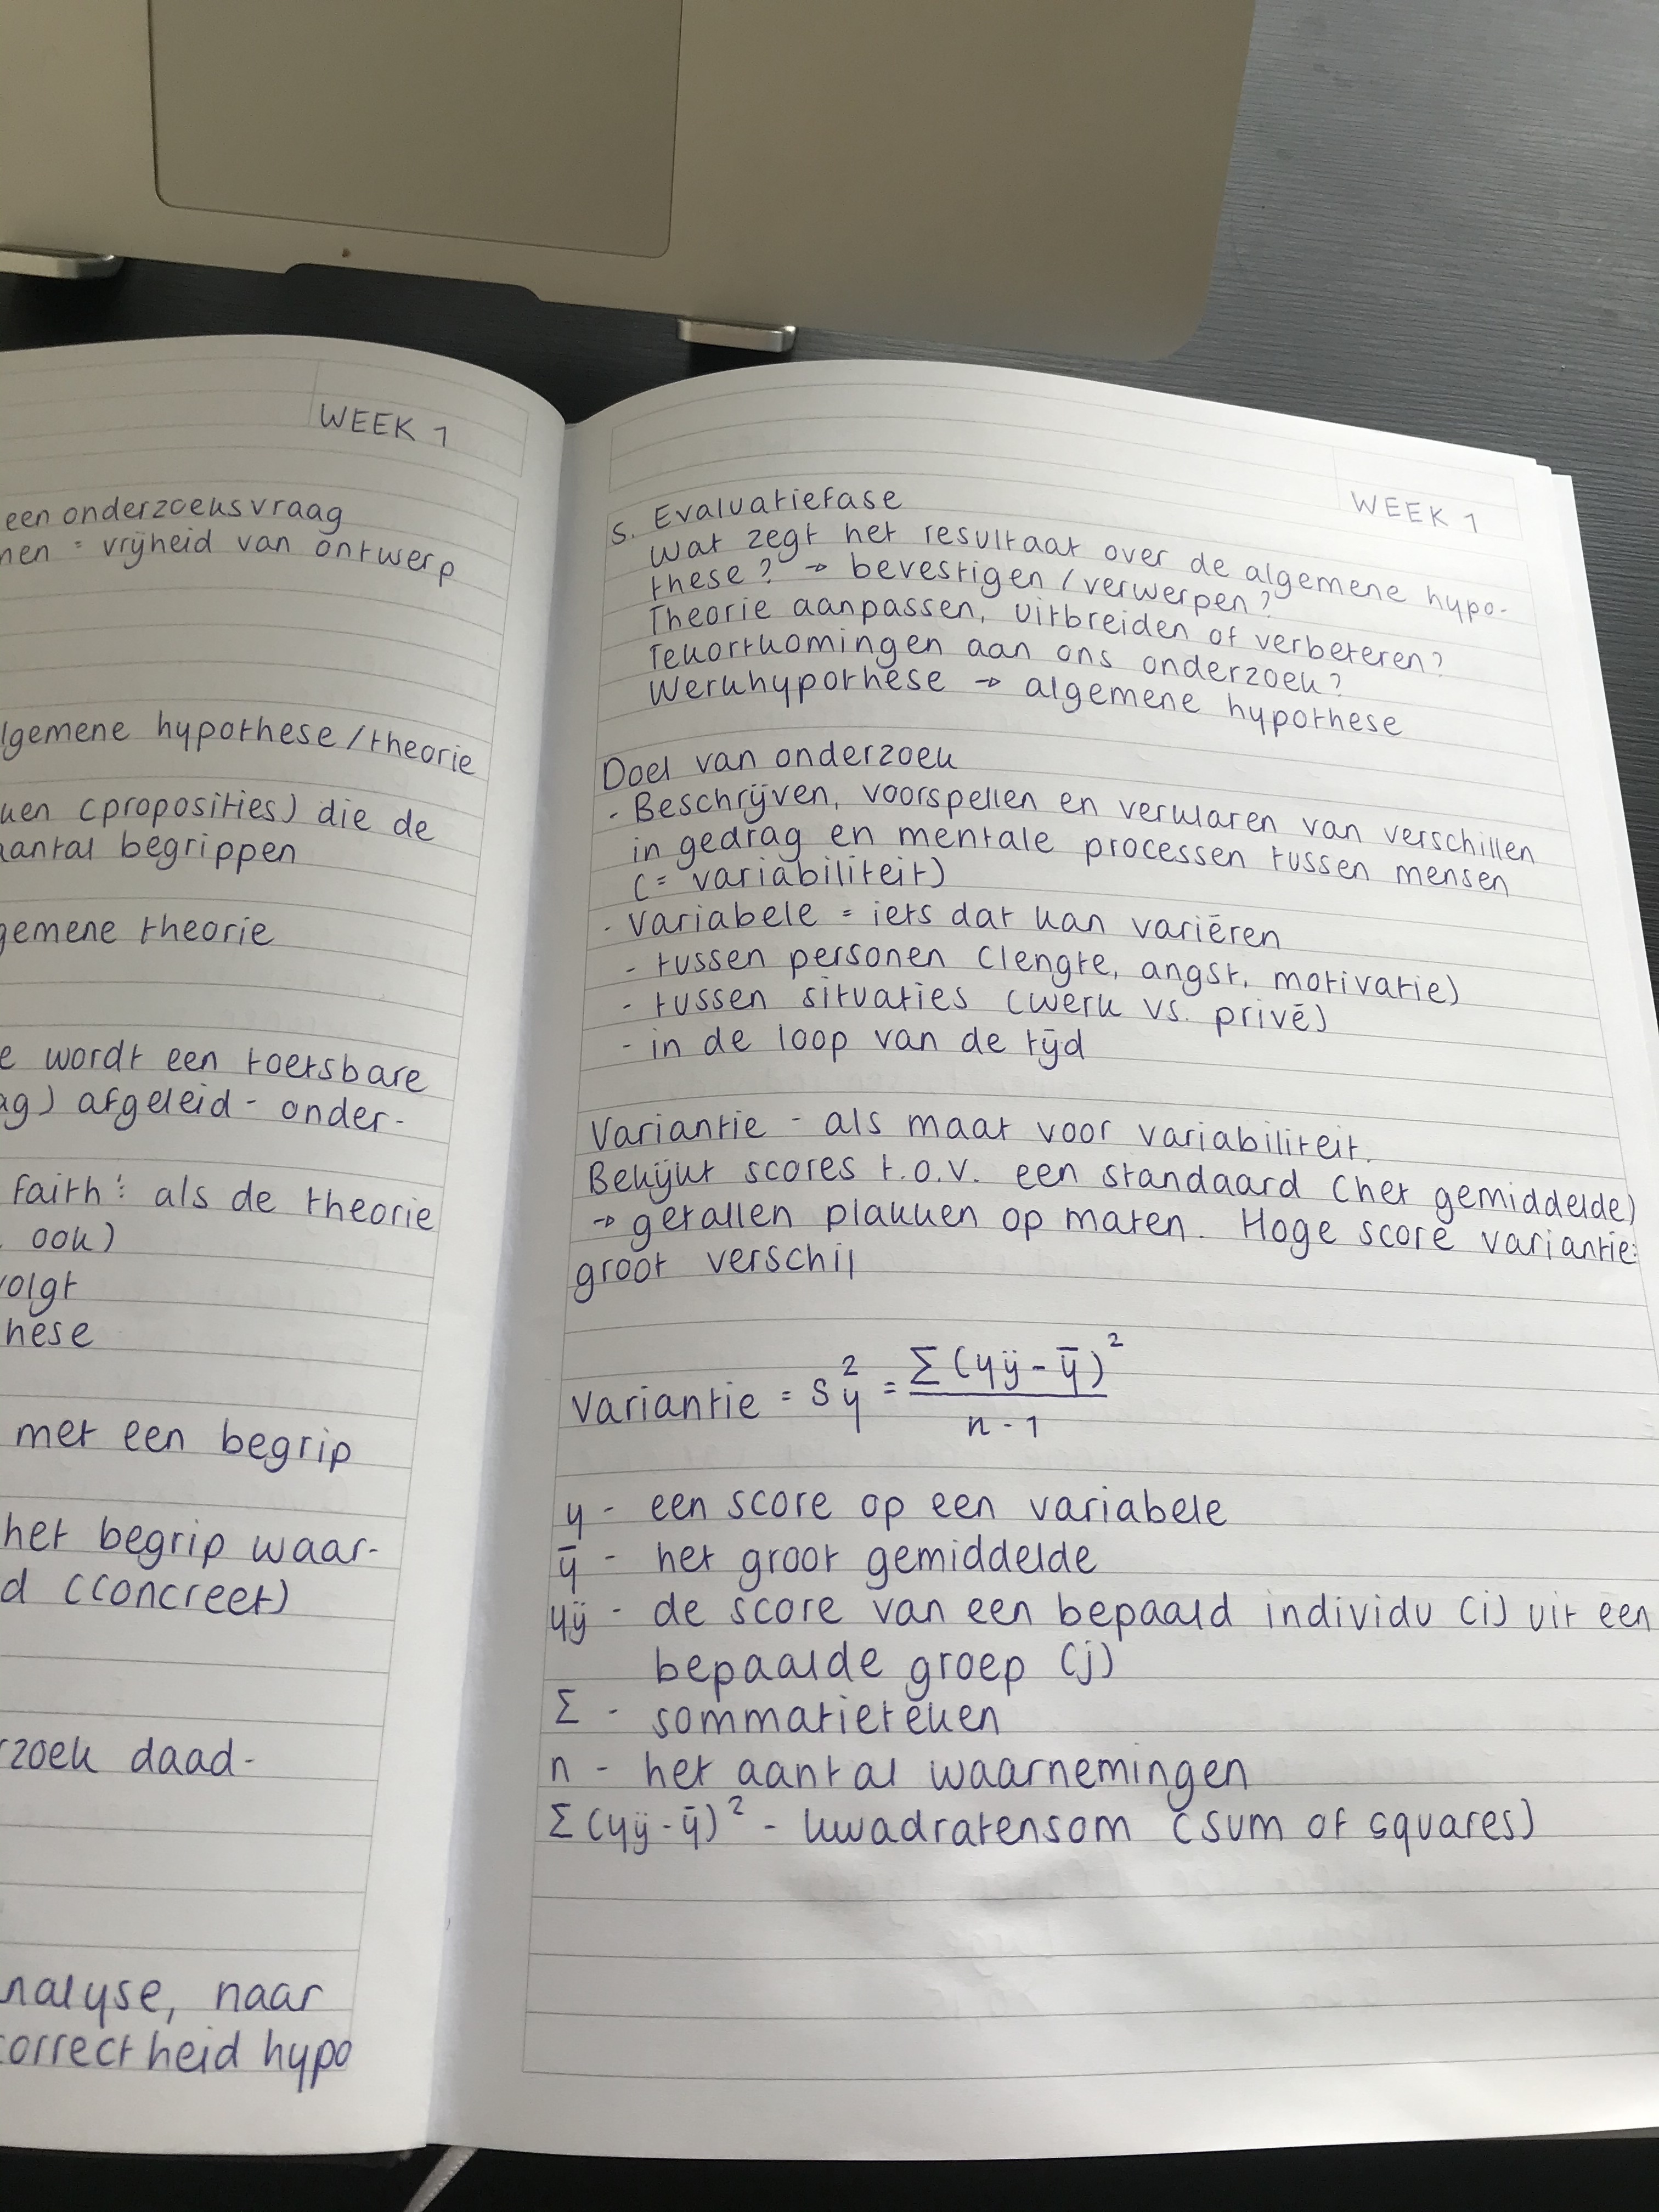 WEEK 1
een onderzoeksvraag
men = vrijheid van ontwerp
lgemene hypothese/theorie
ken (proposities) die de
aantal begrippen
gemene theorie
e wordt een toetsbare
ag) afgeleid - onder-
faith: als de theorie
ook)
volgt
hese
met een begrip
het begrip waar-
d (concreet)
rzoek daad-
nalyse, naar
correctheid hypo
WEEK 1
5. Evaluatiefase
Wat zegt het resultaat over de algemene hypo-
these? → bevestigen/verwerpen?
Theorie aanpassen, uitbreiden of verbeteren?
Tekortkomingen aan ons onderzoek?
Werkhypothese → algemene hypothese
Doel van onderzoek
- Beschrijven, voorspellen en verklaren van verschillen
in gedrag en mentale processen tussen mensen
(= variabiliteit)
- variabele = iets dat kan variëren
- tussen personen (lengte, angst, motivatie)
- tussen situaties (werk vs. privé)
- in de loop van de tijd
Variantie - als maat voor variabiliteit.
Bekijkt scores t.o.v. een standaard (het gemiddelde)
→ getallen plakken op maten. Hoge score variantie:
groot verschil
Variantie = s²y = Σ(yij - ȳ)² / n - 1
y - een score op een variabele
ȳ - het groot gemiddelde
yij - de score van een bepaald individu (i) uit een
bepaalde groep (j)
Σ - sommatieteken
n - het aantal waarnemingen
Σ(yij - ȳ)² - kwadratensom (sum of squares)